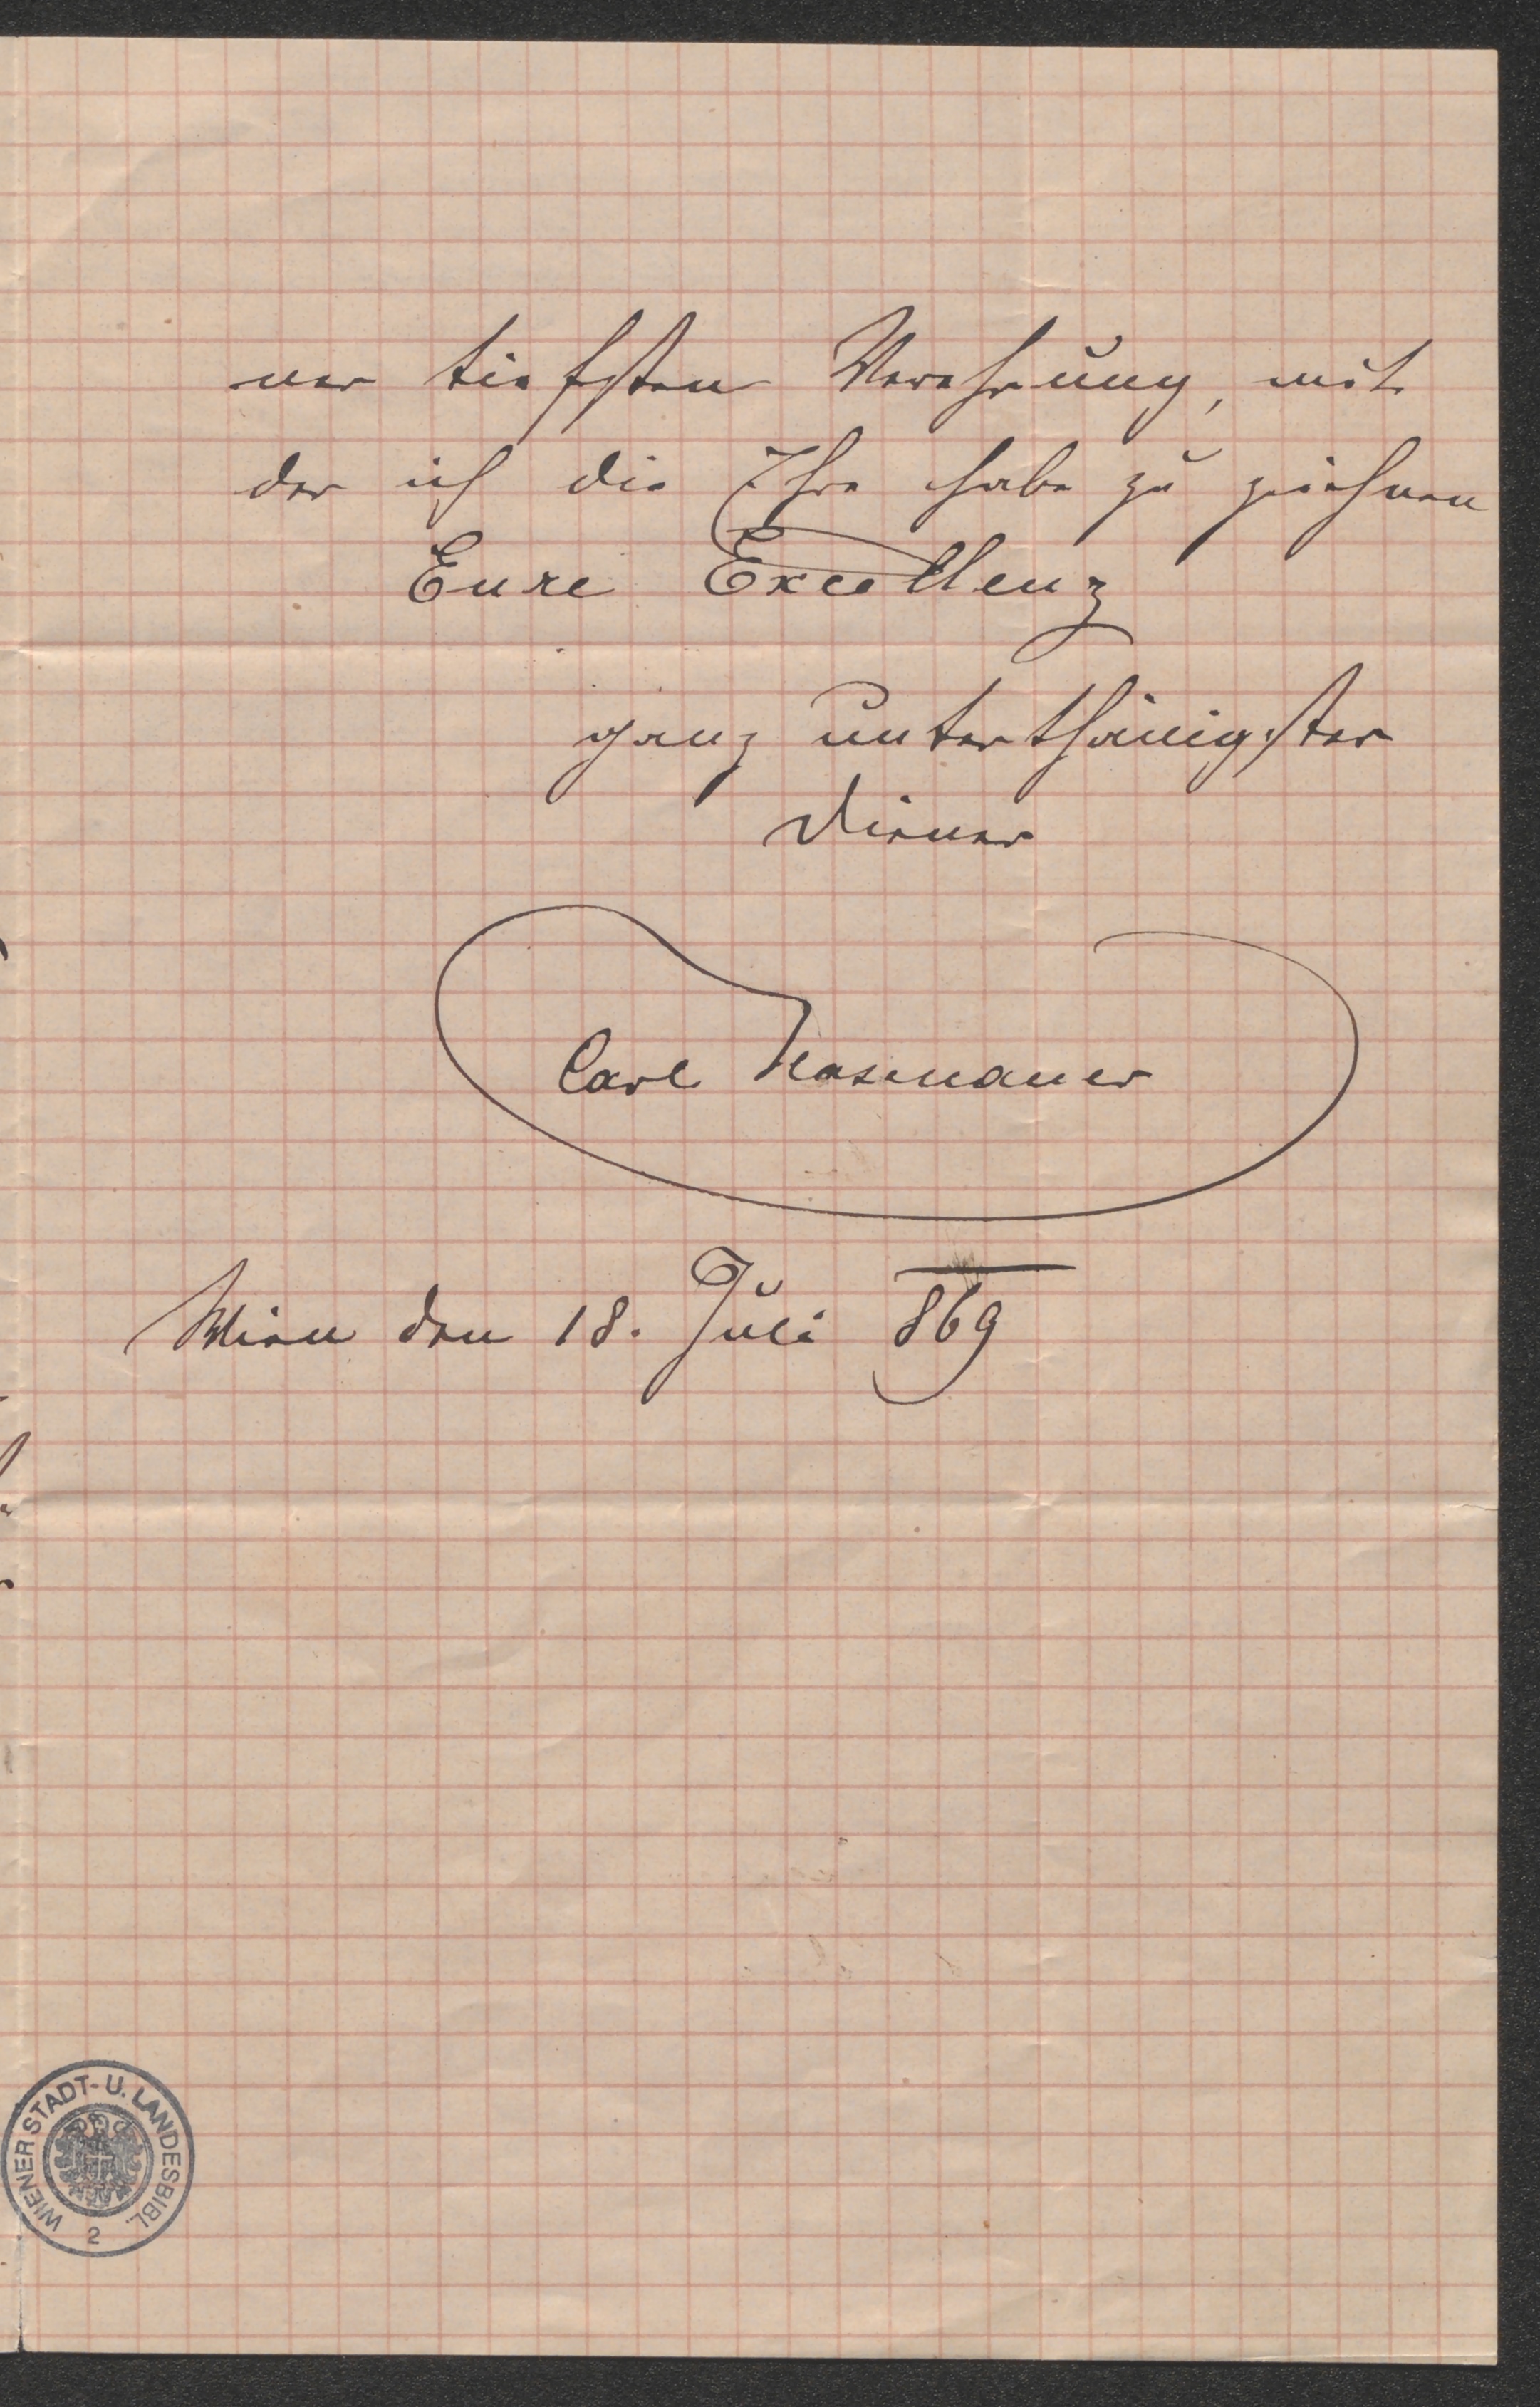 ner tiefsten Verehrung, mit
der ich die Ehre habe zu zeichnen
Eure Excellenz
ganz unterthänigster
Diener
Carl Hasenauer
Wien den 18. Juli 869
WIENER STADT- U. LANDESBIBL.
2